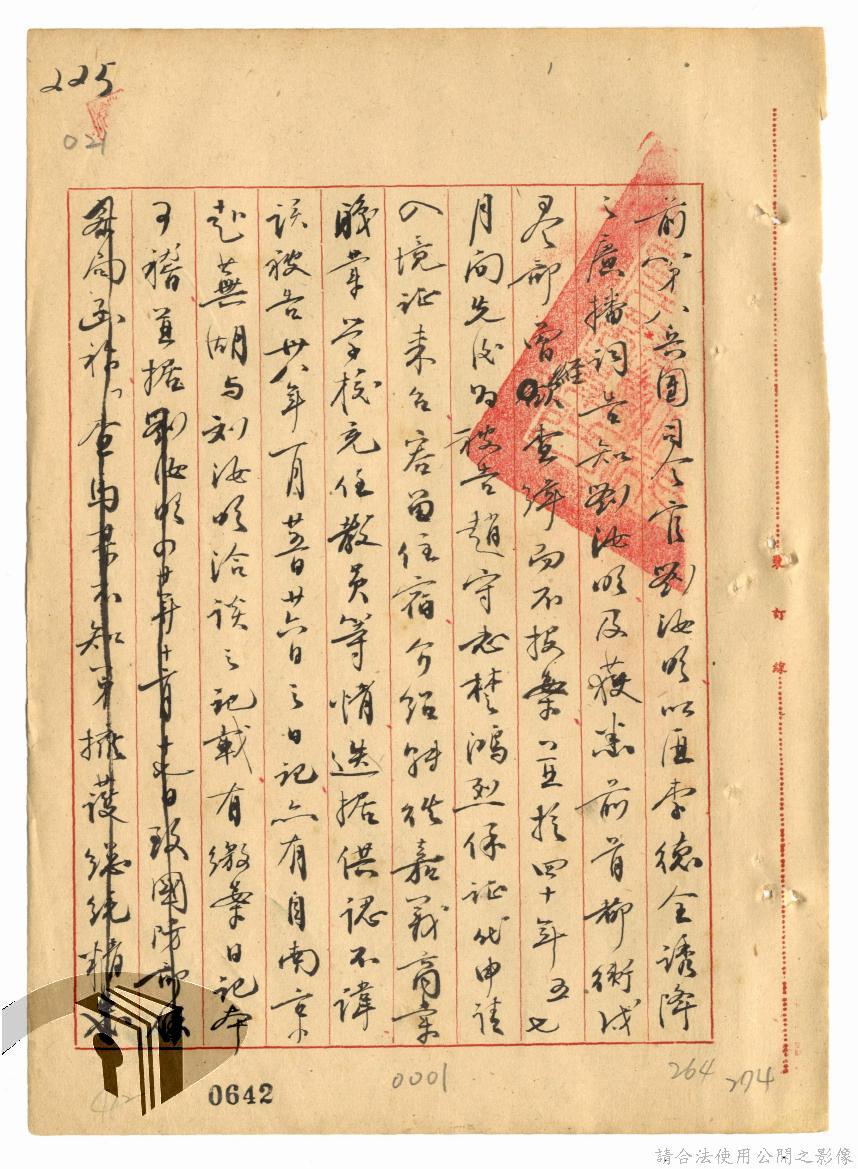 225
021
前第八兵團司令官劉汝明以匪李德全誘降
之廣播詞告知劉汝明及獲悉前首都衛戍
部曾經查緝而不投案並於四十年五七
月向先後為被告趙守志楚鴻烈保証代申請
入境証來台容留住宿介紹至嘉義商業
職業学校充任教員等情迭據供認不諱
該被告卅八年一月廿五日廿六日之日記亦有自南京
赴蕪湖与刘汝明洽談之記載有繳案日記本
可稽並据劉汝明四十年十二月十七日致國防部保
局函称「查馬君不知其擁護總統精
裝訂線
0642
0001
264
274
請合法使用公開之影像